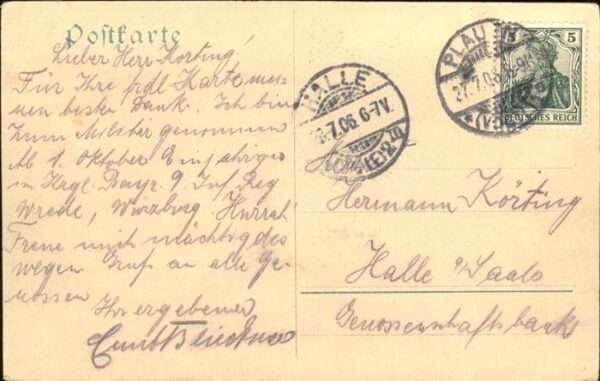 Postkarte
Lieber Herr Korting!
Für Ihre frdl. Karte mei-
nen besten Dank. Ich bin
zum Militär genommen
Ab 1. Oktober Einjähriger
im Krgl. Bayr. 9 Inf. Reg
Wrede, Würzburg. Hurrah
Freue mich mächtig des
wegen Gruß an alle Ge-
nossen
Ihr ergebener
HALLE
7.06. 6-7V.
PLAU
27.7.06
5
DEUTSCHES REICH
Herrn
Hermann Körting
Halle a/Saale
Genossenschaftsbank